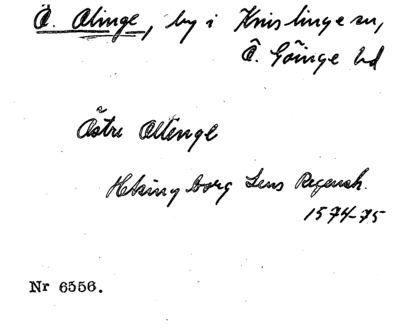 Ö. Olinge, by i Knislinge sn,
Ö. Göinge hd
Østre Ollenge
Helsingborg Lens Regensk.
1574-75
Nr 6556.